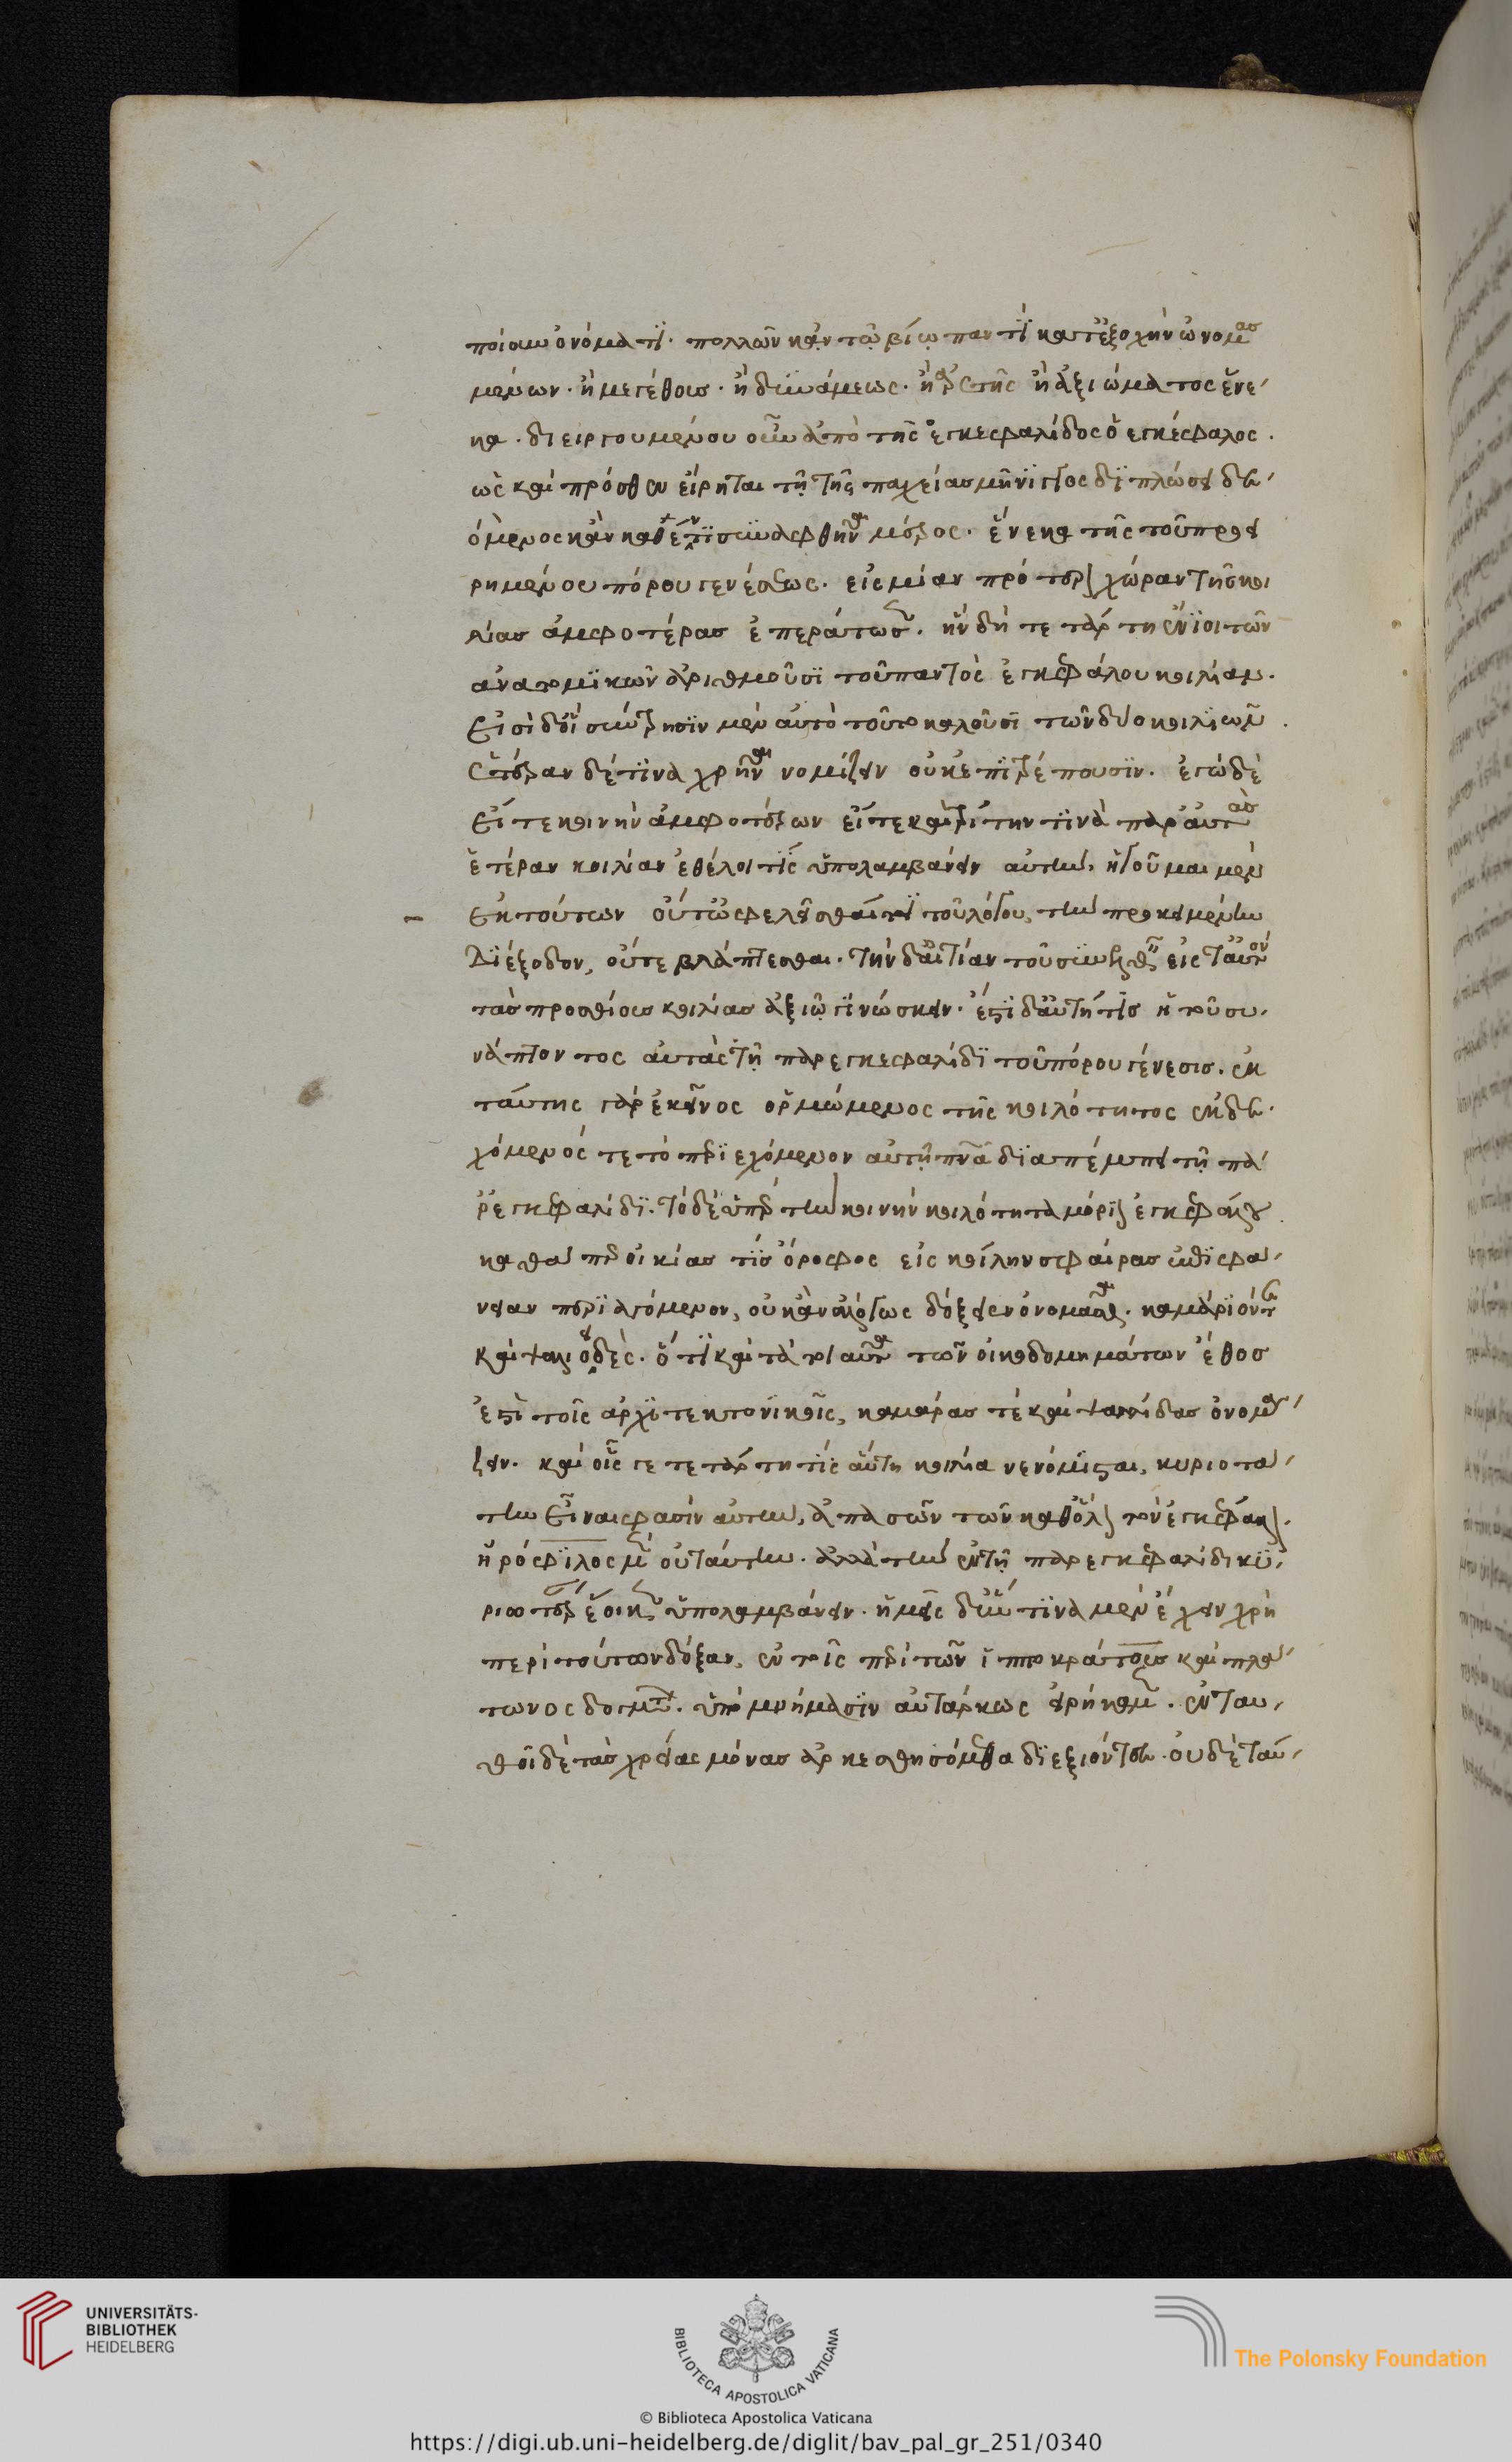 ποίαν ὀνόματι. πολλῶν κἀν τῷ βίῳ παντὶ κατ' ἐξοχὴν ὠνομασ
μένων. ἢ μεγέθους. ἢ δυνάμεως. ἢ ἀρετῆς ἢ ἀξιώματος ἕνε
κα. διειργουμένου οὖν ἀπὸ τῆς ἐγκεφαλίδος ὁ ἐγκέφαλος.
ὡς καὶ πρόσθεν εἴρηται τῇ τῆς παχείας μήνιγγος διπλώσει δε
όμενος κἂν καθ' ἕν τι συναφθῆναι μέρος. ἕνεκα τῆς τοῦ προει
ρημένου πόρου γενέσεως. εἰς μίαν πρότερον χώραν τῆς κοι
λίας ἀμφοτέρας ἐπεράτωσεν. ἣν δὴ τετάρτην ἔνιοι τῶν
ἀνατομικῶν ἀριθμοῦσι τοῦ παντὸς ἐγκεφάλου κοιλίαν.
Εἰσὶ δ' οἳ σύντρησιν μὲν αὐτὸ τοῦτο καλοῦσι τῶν δύο κοιλιῶν
ἑτέραν δέ τινα χρῆναι νομίζειν οὐκ ἐπιτρέπουσιν. ἐγὼ δὲ
Εἴτε κοινὴν ἀμφοτέρων εἴτε καὶ τρίτην τινὰ παρ' αὐτὰς
ἑτέραν κοιλίαν ἐθέλοι τίς ὑπολαμβάνειν αὐτὴν, ἡγοῦμαι μὲν
Ἐκ τούτων οὔτ' ὠφελεῖσθαί τι τοῦ λόγου, τὴν προκειμένην
Διέξοδον, οὔτε βλάπτεσθαι. τὴν δ' αἰτίαν τοῦ συνελθεῖν εἰς ταὐτὸν
τὰς προσθίους κοιλίας ἀξιῶ γινώσκειν. ἔστι δ' αὕτη τίς ἡ τοῦ συ
νάπτοντος αὐτὰς τῇ παρεγκεφαλίδι τοῦ πόρου γένεσις. ἐκ
ταύτης γὰρ ἐκεῖνος ὁρμώμενος τῆς κοιλότητος ἐκδε
χόμενός τε τὸ περιεχόμενον αὐτῇ πνα διαπέμπει τῇ πα
ρεγκεφαλίδι. τὸ δὲ ὑπὲρ τὴν κοινὴν κοιλότητα μόριον ἐγκεφάλου
καθάπερ οἰκίας τίς ὄροφος εἰς κοίλην σφαίρας ἐπιφά
νειαν περιαγόμενον, οὐκ ἂν ἀλόγως δόξειεν ὀνομάσθαι. καμάριόν τε
καὶ ψαλιοειδές. ὅτι καὶ τὰ τοιαῦτα τῶν οἰκοδομημάτων ἔθος
ἐστὶ τοῖς ἀρχιτεκτονικοῖς, καμάρας τὲ καὶ ψαλίδας ὀνομά
ζειν. καὶ οἷς γε τετάρτη τίς αὕτη κοιλία νενόμισται, κυριωτά
την εἶναι φασὶν αὐτὴν, ἁπασῶν τῶν καθ' ὅλον τὸν ἐγκέφαλον.
ἡρόφιλος μὲν οὐ ταύτην. ἀλλὰ τὴν ἐν τῇ παρεγκεφαλίδι κυ
ριωτέραν ἔοικεν ὑπολαμβάνειν. ἡμεῖς δ' ἣν τινα μὲν ἔχειν χρὴ
περὶ τούτων δόξαν, ἐν τοῖς περὶ τῶν ἱπποκράτους καὶ πλά
τωνος δογμάτων. ὑπομνήμασιν αὐτάρκως εἰρήκαμεν. ἐνταυ
θοῖ δὲ τὰς χρείας μόνας ἀρκεσθησόμεθα διεξιόντες. οὐδὲ ταύ
UNIVERSITÄTS-
BIBLIOTHEK
HEIDELBERG
BIBLIOTECA APOSTOLICA VATICANA
The Polonsky Foundation
© Biblioteca Apostolica Vaticana
https://digi.ub.uni-heidelberg.de/diglit/bav_pal_gr_251/0340